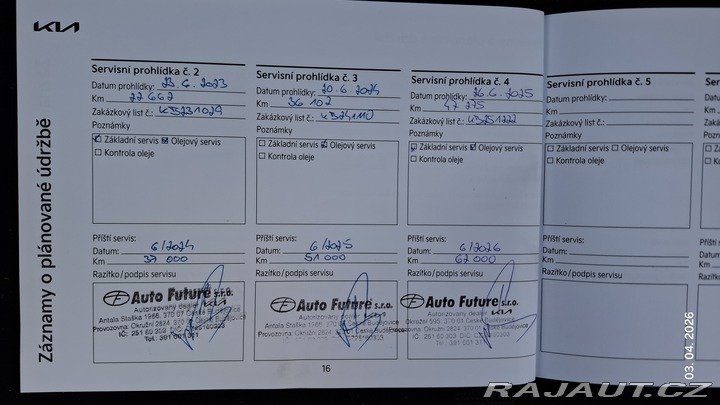 KIA
Záznamy o plánované údržbě
Servisní prohlídka č. 2
Datum prohlídky: 23.6.2023
Km 22 662
Zakázkový list č.: 45231029
Poznámky
Základní servis Olejový servis
Kontrola oleje
Příští servis:
Datum: 6/2024
Km 37 000
Razítko/podpis servisu
Auto Future s.r.o.
Autorizovaný dealer KIA
Antala Staška 1966, 370 07 České Budějovice
Provozovna: Okružní 2624, 370 0
IČ: 251 60 303
Tel.: 391 001 311
Servisní prohlídka č. 3
Datum prohlídky: 20.6.2024
Km 36 107
Zakázkový list č.: 4524110
Poznámky
Základní servis Olejový servis
Kontrola oleje
Příští servis:
Datum: 6/2025
Km 51 000
Razítko/podpis servisu
Auto Future s.r.o.
Autorizovaný dealer KIA
Antala Staška 1966, 370 07 České Budějovice
Provozovna: Okružní 2624
IČ: 251 60 303
Tel.: 391 001
Servisní prohlídka č. 4
Datum prohlídky: 26.6.2025
Km 47 275
Zakázkový list č.: 43251222
Poznámky
Základní servis Olejový servis
Kontrola oleje
Příští servis:
Datum: 6/2026
Km 62 000
Razítko/podpis servisu
Auto Future s.r.o.
Autorizovaný dealer KIA
Okružní 595, 370 01 České Budějovice
Provozovna: Okružní 2624, 370
IČ: 251 60 303
Tel.: 391 001 31
Servisní prohlídka č. 5
Datum prohlídky:
Km
Zakázkový list č.:
Poznámky
Základní servis Olejový servis
Kontrola oleje
Příští servis:
Datum:
Km
Razítko/podpis servisu
16
03.04.2026
RAJAUT.CZ